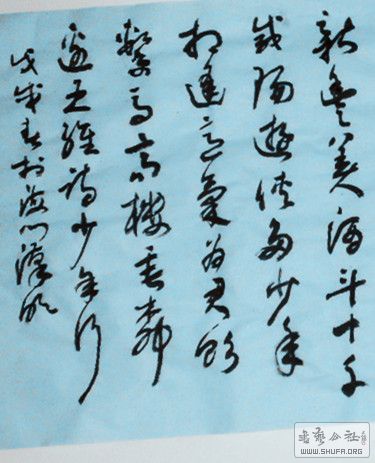 新豐美酒斗十千
咸陽遊俠多少年
相逢意氣為君飲
繫馬高樓垂柳
邊王維詩少年行
戊戌春於海口漢
書法公社
WWW.SHUFA.ORG